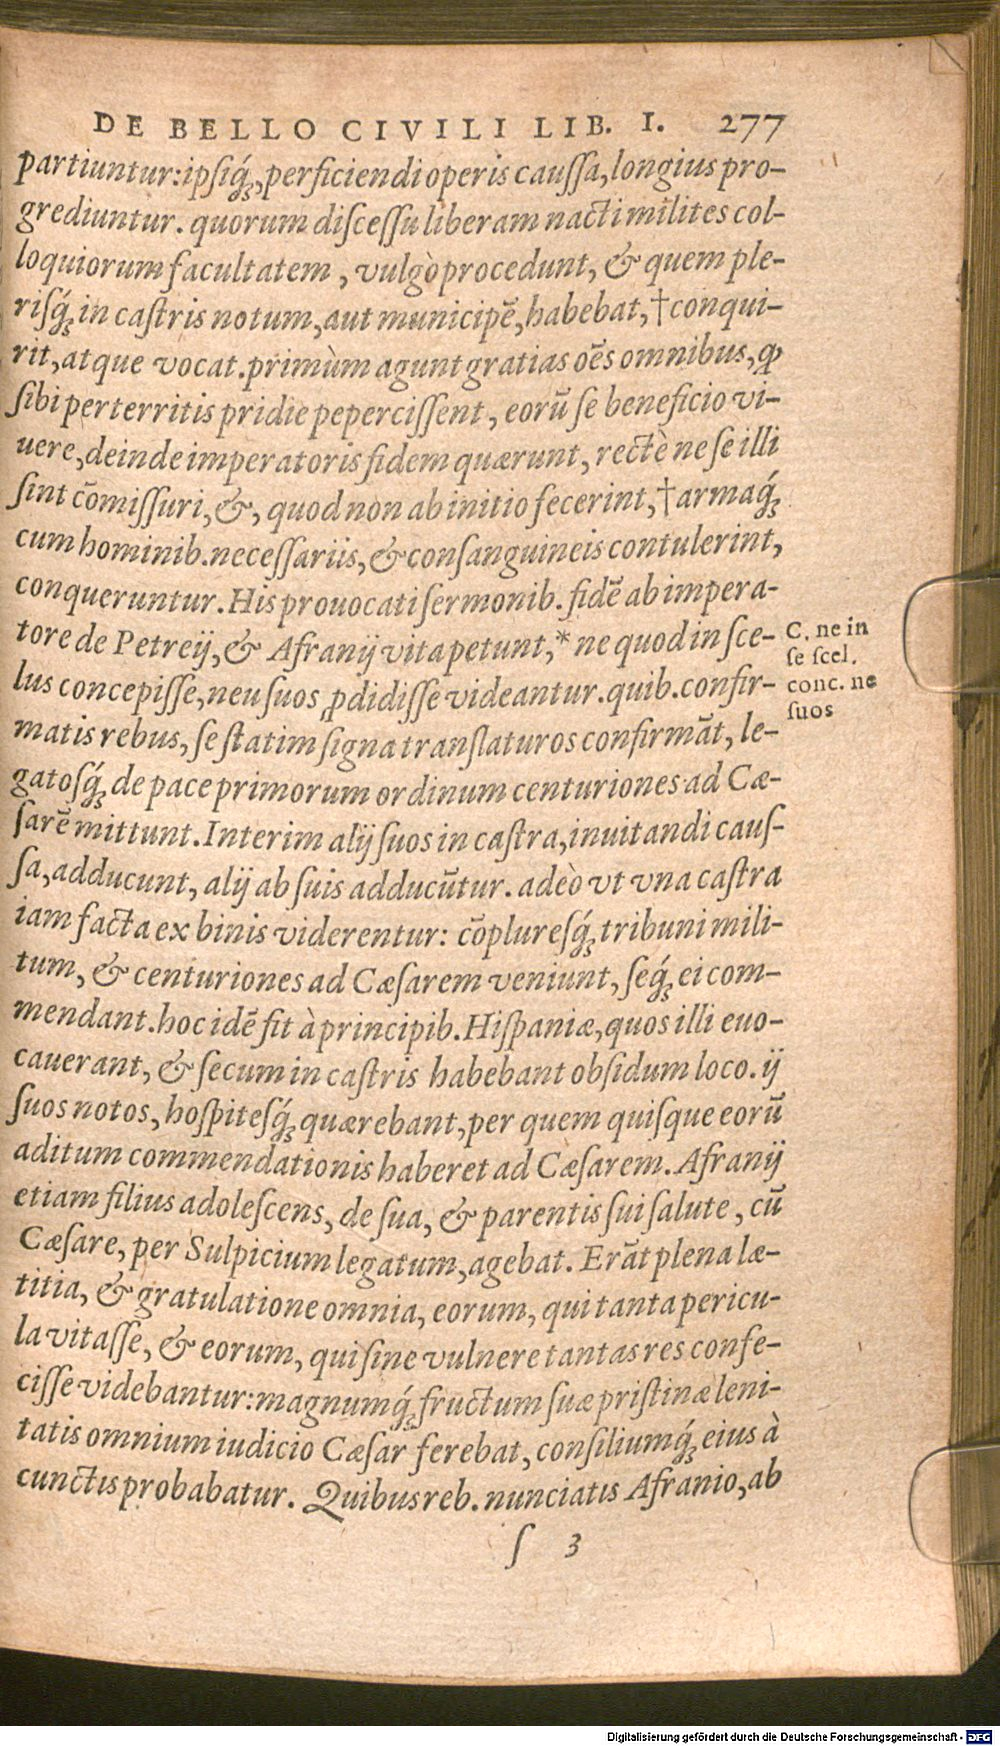 DE BELLO CIVILI LIB. I. 277
partiuntur: ipsiq́₃, perficiendi operis caussa, longius pro-
grediuntur. quorum discessu liberam nacti milites col-
loquiorum facultatem, vulgò procedunt, & quem ple-
risq́₃ in castris notum, aut municipē, habebat, † conqui-
rit, atque vocat. primùm agunt gratias oēs omnibus, ꝙ
sibi perterritis pridie pepercissent, eorū se beneficio vi-
uere, deinde imperatoris fidem quærunt, rectè ne se illi
sint cōmissuri, &, quod non ab initio fecerint, † armaq́₃
cum hominib. necessariis, & consanguineis contulerint,
conqueruntur. His prouocati sermonib. fidē ab impera-
tore de Petreij, & Afranij vita petunt, * ne quod in sce-
lus concepisse, neu suos ꝓdidisse videantur. quib. confir-
matis rebus, se statim signa translaturos confirmāt, le-
gatosq́₃ de pace primorum ordinum centuriones ad Cæ-
sarē mittunt. Interim alij suos in castra, inuitandi caus-
sa, adducunt, alij ab suis adducūtur. adeò vt vna castra
iam facta ex binis viderentur: cōpluresq́₃ tribuni mili-
tum, & centuriones ad Cæsarem veniunt, seq́₃ ei com-
mendant. hoc idē fit à principib. Hispaniæ, quos illi euo-
cauerant, & secum in castris habebant obsidum loco. ij
suos notos, hospitesq́₃ quærebant, per quem quisque eorū
aditum commendationis haberet ad Cæsarem. Afranij
etiam filius adolescens, de sua, & parentis sui salute, cū
Cæsare, per Sulpicium legatum, agebat. Erāt plena læ-
titia, & gratulatione omnia, eorum, qui tanta pericu-
la vitasse, & eorum, qui sine vulnere tantas res confe-
cisse videbantur: magnumq́₃ fructum suæ pristinæ leni-
tatis omnium iudicio Cæsar ferebat, consiliumq́₃ eius à
cunctis probabatur. Quibus reb. nunciatis Afranio, ab
s 3
C. ne in
se scel.
conc. ne
suos
Digitalisierung gefördert durch die Deutsche Forschungsgemeinschaft - DFG